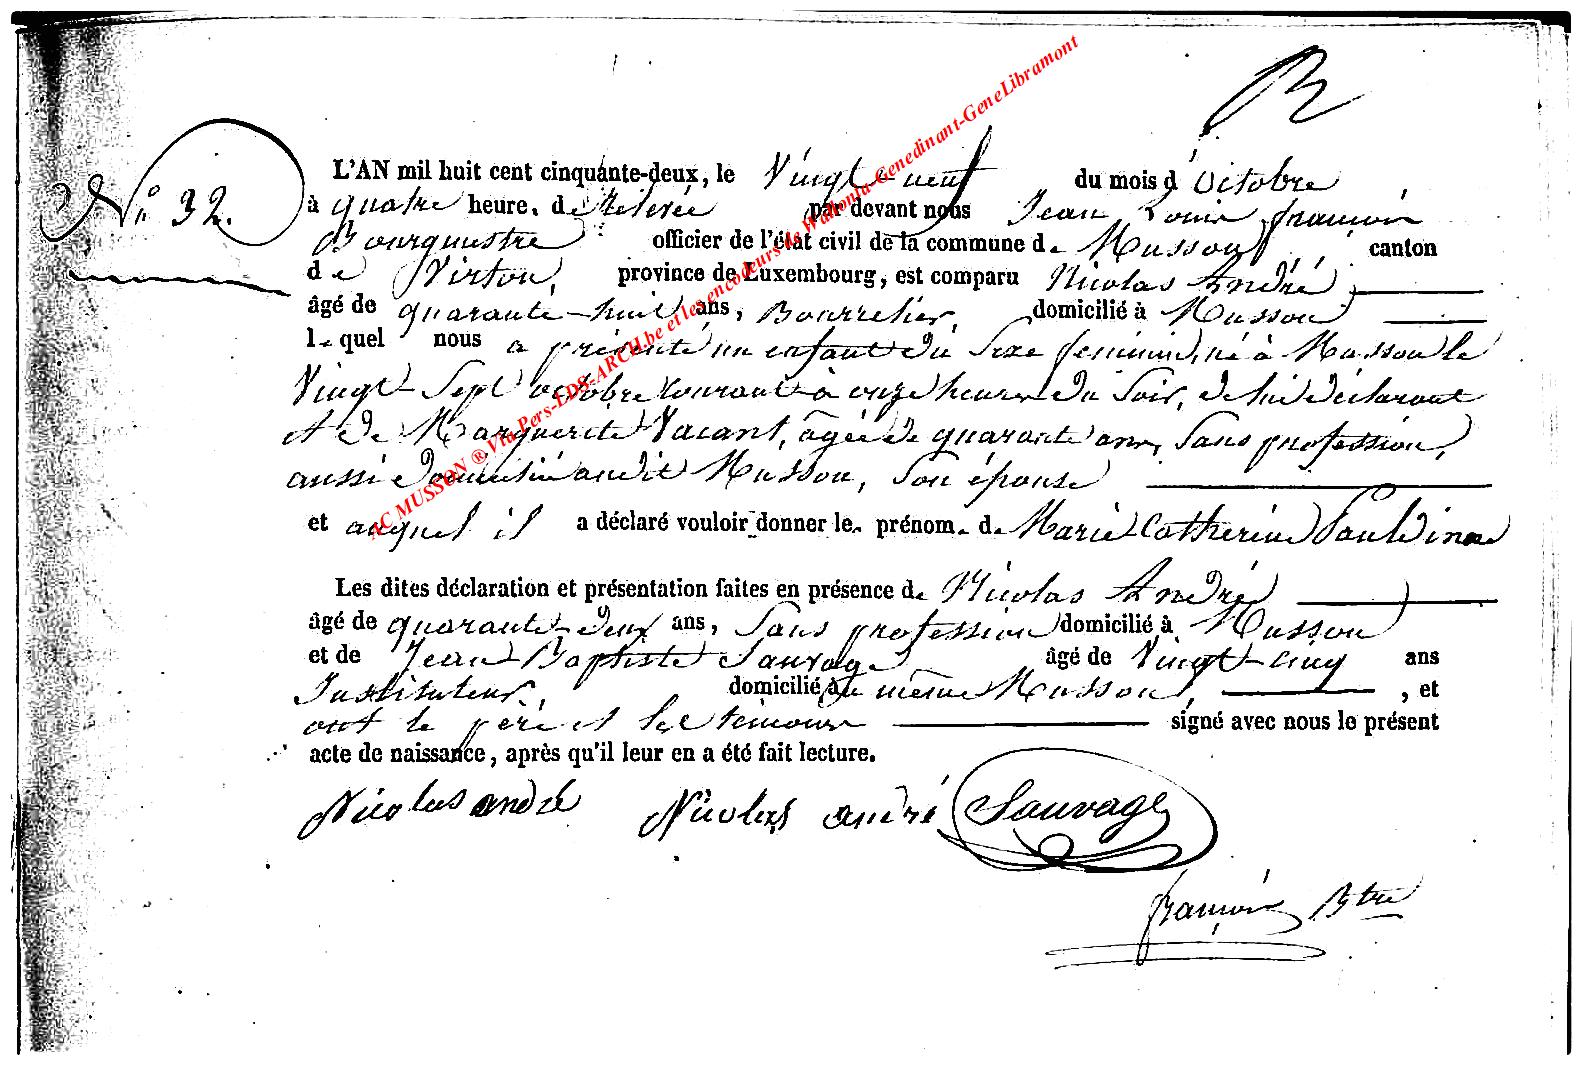 N° 32.
L'AN mil huit cent cinquante-deux, le Vingt-neuf du mois d'Octobre
à quatre heure. de relevée par devant nous Jean Louis françois
Bourgmestre officier de l'état civil de la commune de Musson, canton
de Virton, province de Luxembourg, est comparu Nicolas André,
âgé de quarante-huit ans, Bourrelier, domicilié à Musson
lequel nous a présenté un enfant du Sexe feminin, né à Musson le
Vingt-Sept octobre courant à onze heures du Soir, de lui déclarant
et de Marguerite Vacant, âgée de quarante ans, Sans profession,
aussi domiciliée audit Musson, Son épouse
et auquel il a déclaré vouloir donner le prénom. de Marie-Catherine
Les dites déclaration et présentation faites en présence de Nicolas André
âgé de quarante-deux ans, Sans profession domicilié à Musson
et de Jean-Baptiste Sauvage âgé de Vingt-cinq ans
Instituteur, domicilié à même Musson, , et
ont le père et les témoins signé avec nous le présent
acte de naissance, après qu'il leur en a été fait lecture.
Nicolas andré Nicolas andré Sauvage
françois Btre
AC MUSSON ® Via Pers-LDS-ARCH.be et les encodeurs de Wallonia-Genedinant-GeneLibramont